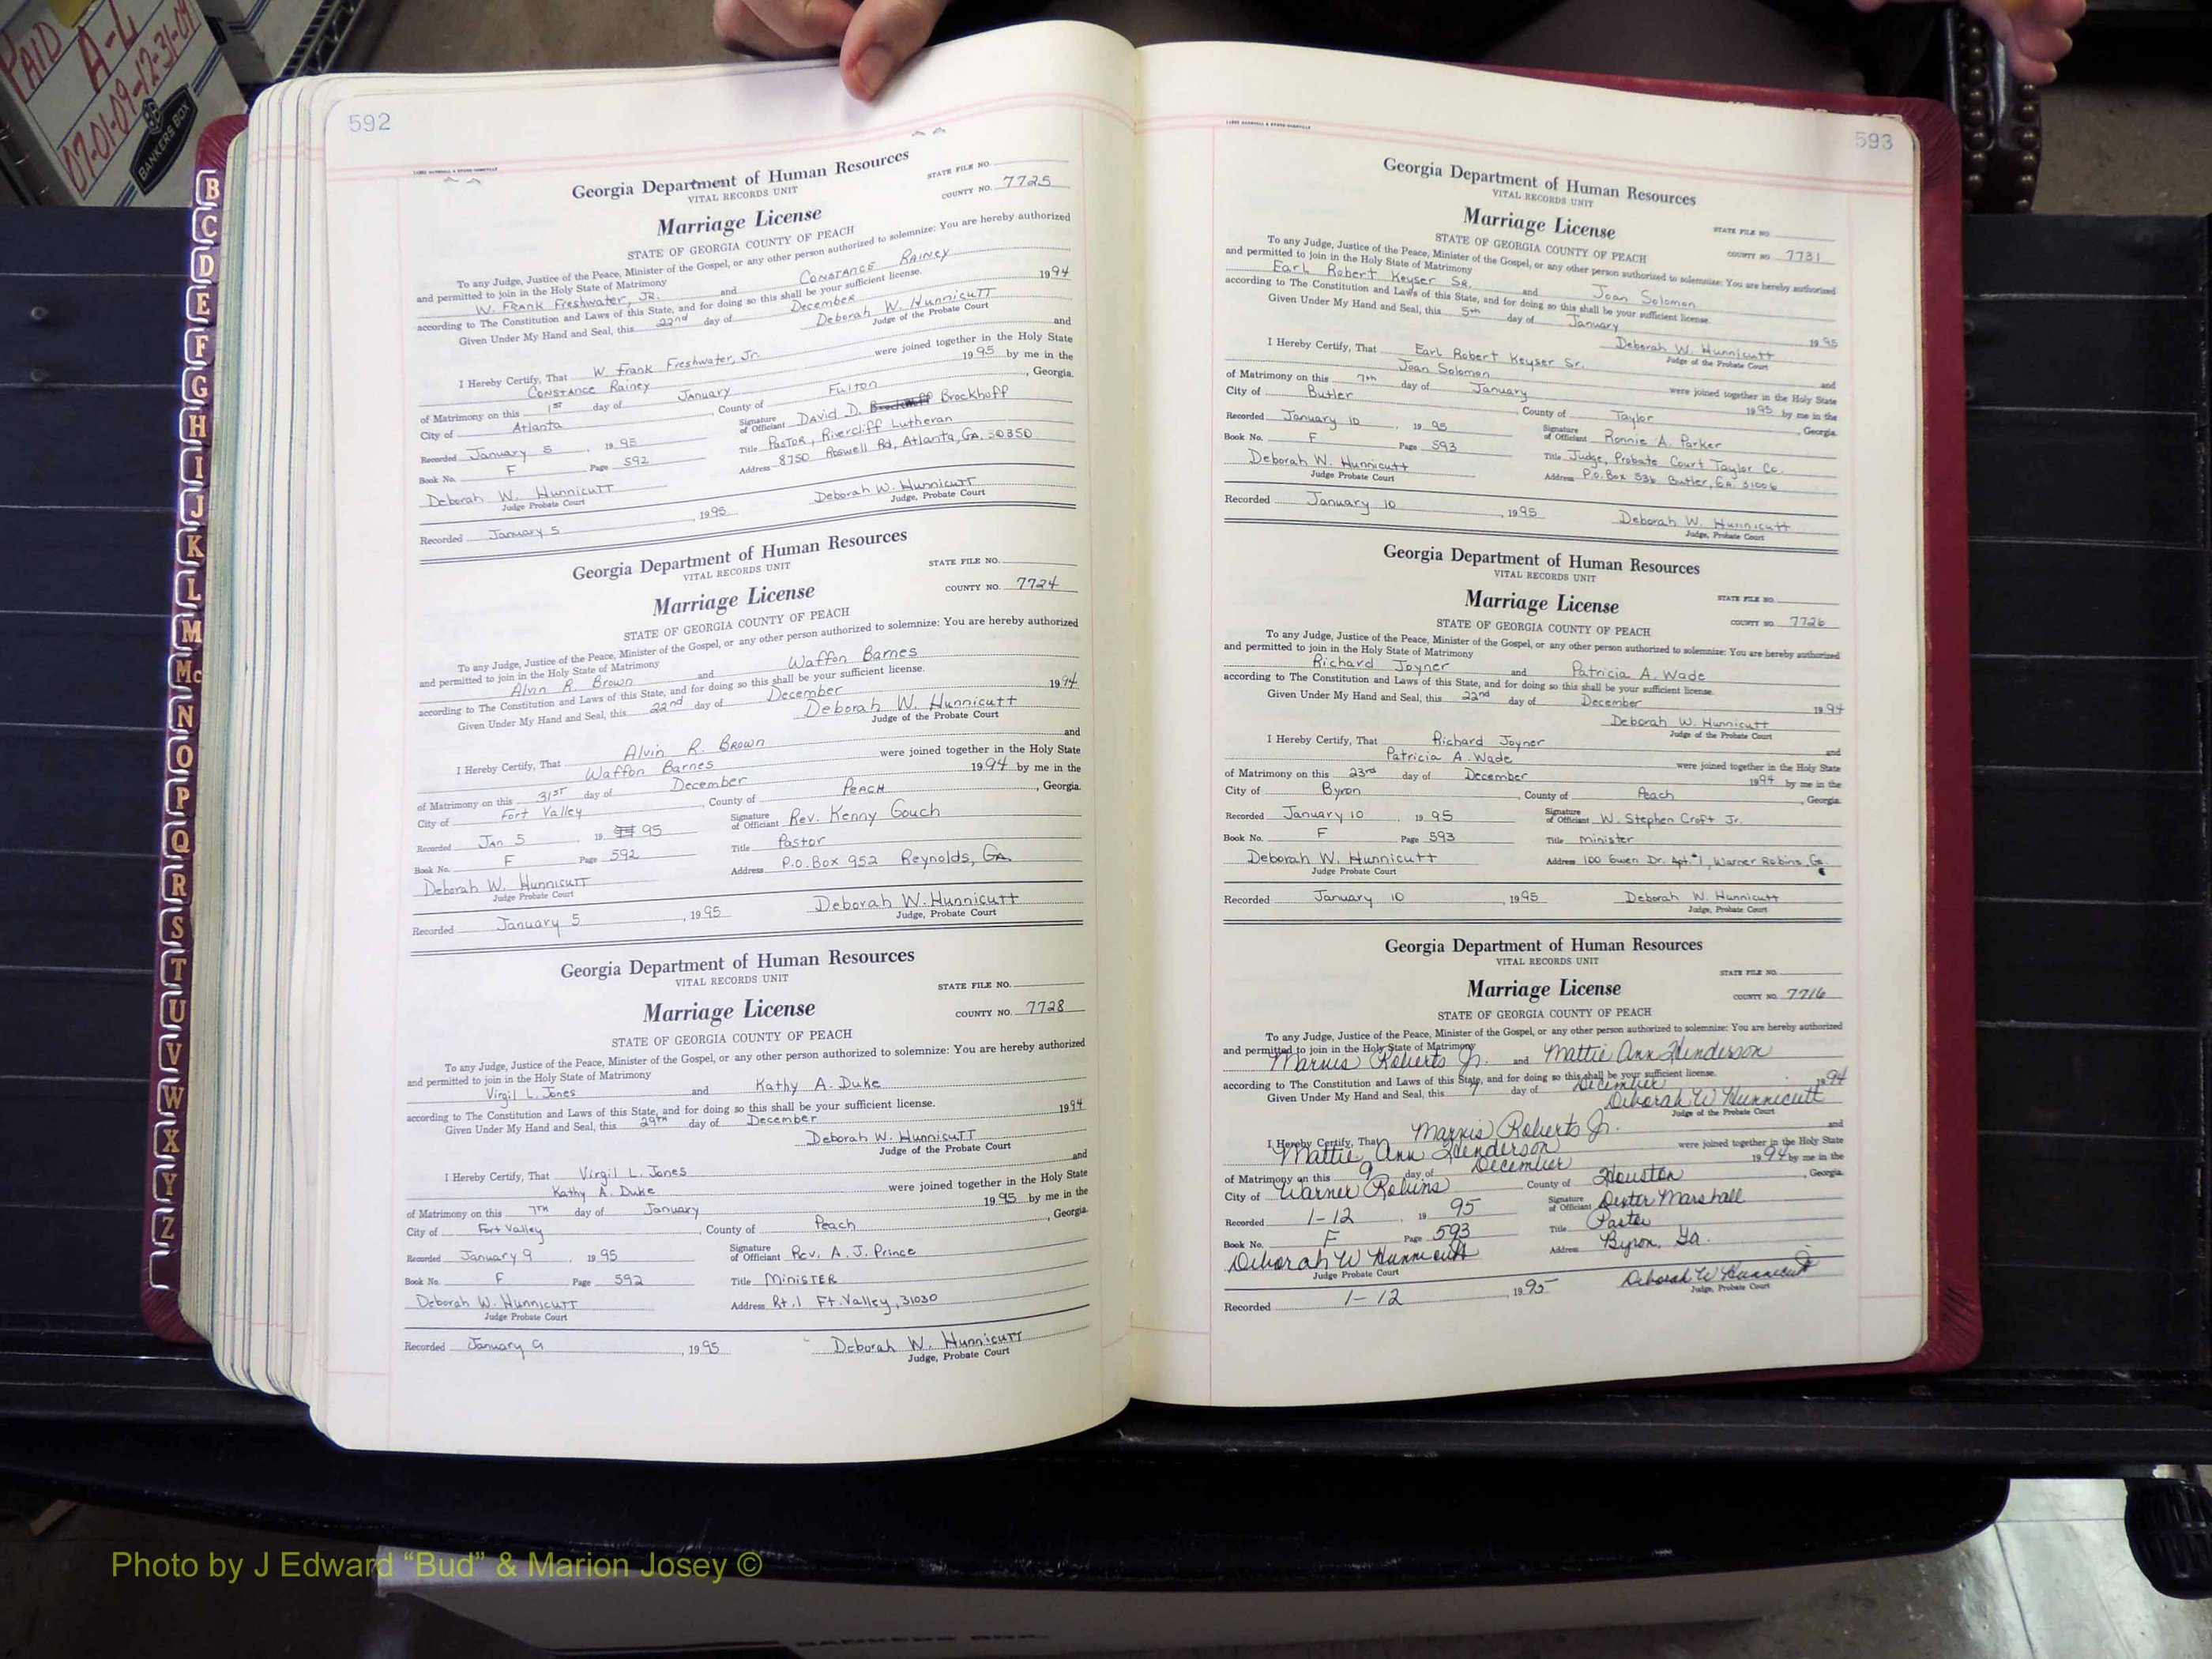 PAID
A-L
07-01-09-12-31-09
BANKERS BOX
B
C
D
E
F
G
H
I
J
K
L
M
Mc
N
O
P
Q
R
S
T
U
V
W
X
Y
Z
592
Georgia Department of Human Resources
VITAL RECORDS UNIT
STATE FILE NO.
COUNTY NO. 7725
Marriage License
STATE OF GEORGIA COUNTY OF PEACH
To any Judge, Justice of the Peace, Minister of the Gospel, or any other person authorized to solemnize: You are hereby authorized
and permitted to join in the Holy State of Matrimony
W. Frank Freshwater, Jr. and Constance Rainey
according to The Constitution and Laws of this State, and for doing so this shall be your sufficient license.
Given Under My Hand and Seal, this 22nd day of December 1994
Deborah W. Hunnicutt
Judge of the Probate Court
I Hereby Certify, That W. Frank Freshwater, Jr. and
Constance Rainey were joined together in the Holy State
of Matrimony on this 1st day of January 1995 by me in the
City of Atlanta, County of Fulton, Georgia.
Recorded January 5, 1995 Signature of Officiant David D. Brockhoff
Book No. F Page 592 Title Pastor, Rivercliff Lutheran
Deborah W. Hunnicutt Address 8750 Roswell Rd, Atlanta, GA. 30350
Judge Probate Court
Recorded January 5, 1995 Deborah W. Hunnicutt
Judge, Probate Court
Georgia Department of Human Resources
VITAL RECORDS UNIT
STATE FILE NO.
COUNTY NO. 7724
Marriage License
STATE OF GEORGIA COUNTY OF PEACH
To any Judge, Justice of the Peace, Minister of the Gospel, or any other person authorized to solemnize: You are hereby authorized
and permitted to join in the Holy State of Matrimony
Alvin R. Brown and Waffon Barnes
according to The Constitution and Laws of this State, and for doing so this shall be your sufficient license.
Given Under My Hand and Seal, this 22nd day of December 1994
Deborah W. Hunnicutt
Judge of the Probate Court
I Hereby Certify, That Alvin R. Brown and
Waffon Barnes were joined together in the Holy State
of Matrimony on this 31st day of December 1994 by me in the
City of Fort Valley, County of Peach, Georgia.
Recorded Jan 5, 19 95 Signature of Officiant Rev. Kenny Gouch
Book No. F Page 592 Title Pastor
Deborah W. Hunnicutt Address P.O. Box 952 Reynolds, GA
Judge Probate Court
Recorded January 5, 1995 Deborah W. Hunnicutt
Judge, Probate Court
Georgia Department of Human Resources
VITAL RECORDS UNIT
STATE FILE NO.
COUNTY NO. 7728
Marriage License
STATE OF GEORGIA COUNTY OF PEACH
To any Judge, Justice of the Peace, Minister of the Gospel, or any other person authorized to solemnize: You are hereby authorized
and permitted to join in the Holy State of Matrimony
Virgil L. Jones and Kathy A. Duke
according to The Constitution and Laws of this State, and for doing so this shall be your sufficient license.
Given Under My Hand and Seal, this 29th day of December 1994
Deborah W. Hunnicutt
Judge of the Probate Court
I Hereby Certify, That Virgil L. Jones and
Kathy A. Duke were joined together in the Holy State
of Matrimony on this 7th day of January 1995 by me in the
City of Fort Valley, County of Peach, Georgia.
Recorded January 9, 1995 Signature of Officiant Rev. A. J. Prince
Book No. F Page 592 Title Minister
Deborah W. Hunnicutt Address Rt. 1 Ft. Valley, 31030
Judge Probate Court
Recorded January 9, 1995 Deborah W. Hunnicutt
Judge, Probate Court
593
Georgia Department of Human Resources
VITAL RECORDS UNIT
Marriage License
STATE FILE NO.
STATE OF GEORGIA COUNTY OF PEACH
COUNTY NO. 7731
To any Judge, Justice of the Peace, Minister of the Gospel, or any other person authorized to solemnize: You are hereby authorized
and permitted to join in the Holy State of Matrimony
Earl Robert Keyser Sr. and Joan Solomon
according to The Constitution and Laws of this State, and for doing so this shall be your sufficient license.
Given Under My Hand and Seal, this 5th day of January 1995
Deborah W. Hunnicutt
Judge of the Probate Court
I Hereby Certify, That Earl Robert Keyser Sr. and
Joan Solomon were joined together in the Holy State
of Matrimony on this 7th day of January 1995 by me in the
City of Butler, County of Taylor, Georgia.
Recorded January 10, 1995 Signature of Officiant Ronnie A. Parker
Book No. F Page 593 Title Judge, Probate Court Taylor Co.
Deborah W. Hunnicutt Address P.O. Box 536 Butler, GA. 31006
Judge Probate Court
Recorded January 10, 1995 Deborah W. Hunnicutt
Judge, Probate Court
Georgia Department of Human Resources
VITAL RECORDS UNIT
Marriage License
STATE FILE NO.
STATE OF GEORGIA COUNTY OF PEACH
COUNTY NO. 7726
To any Judge, Justice of the Peace, Minister of the Gospel, or any other person authorized to solemnize: You are hereby authorized
and permitted to join in the Holy State of Matrimony
Richard Joyner and Patricia A. Wade
according to The Constitution and Laws of this State, and for doing so this shall be your sufficient license.
Given Under My Hand and Seal, this 22nd day of December 1994
Deborah W. Hunnicutt
Judge of the Probate Court
I Hereby Certify, That Richard Joyner and
Patricia A. Wade were joined together in the Holy State
of Matrimony on this 23rd day of December 1994 by me in the
City of Byron, County of Peach, Georgia.
Recorded January 10, 1995 Signature of Officiant W. Stephen Croft Jr.
Book No. F Page 593 Title minister
Deborah W. Hunnicutt Address 100 Gwen Dr. Apt. #1, Warner Robins, Ga.
Judge Probate Court
Recorded January 10, 1995 Deborah W. Hunnicutt
Judge, Probate Court
Georgia Department of Human Resources
VITAL RECORDS UNIT
STATE FILE NO.
Marriage License
COUNTY NO. 7716
STATE OF GEORGIA COUNTY OF PEACH
To any Judge, Justice of the Peace, Minister of the Gospel, or any other person authorized to solemnize: You are hereby authorized
and permitted to join in the Holy State of Matrimony
Roberts Jr. and Mattie Ann Henderson
according to The Constitution and Laws of this State, and for doing so this shall be your sufficient license.
Given Under My Hand and Seal, this 7 day of December 1994
Deborah W Hunnicutt
Judge of the Probate Court
I Hereby Certify, That Roberts Jr. and
Mattie Ann Henderson were joined together in the Holy State
of Matrimony on this 9 day of December 1994 by me in the
City of Warner Robins, County of Houston, Georgia
Recorded 1-12, 19 95 Signature of Officiant Dexter Marshall
Book No. F Page 593 Title Pastor
Deborah W Hunnicutt Address Byron, Ga.
Judge Probate Court
Recorded 1-12, 1995 Deborah W Hunnicutt
Judge, Probate Court
Photo by J Edward “Bud” & Marion Josey ©